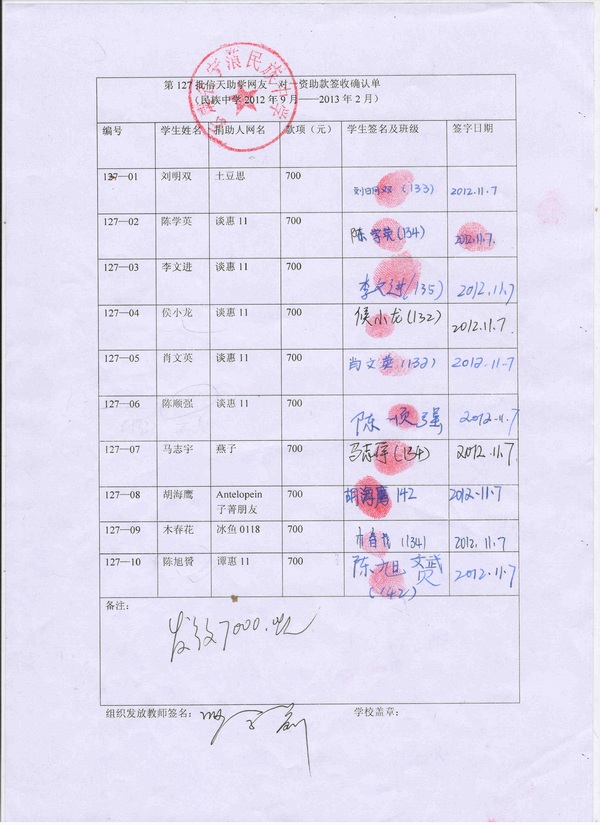 第127批信天助学网友一对一资助款签收确认单
(民族中学2012年9月——2013年2月)
编号 学生姓名 捐助人网名 款项（元） 学生签名及班级 签字日期
127—01 刘明双 土豆思 700 刘明双 (133) 2012.11.7
127—02 陈学英 谈惠11 700 陈学英(134) 2012.11.7
127—03 李文进 谈惠11 700 李文进(135) 2012.11.7
127—04 侯小龙 谈惠11 700 侯小龙(132) 2012.11.7.
127—05 肖文英 谈惠11 700 肖文英(132) 2012.11-7
127—06 陈顺强 谈惠11 700 陈顺强 2012-11.7
127—07 马志宇 燕子 700 马志宇(134) 2012.11.7
127—08 胡海鹰 Antelopein 700 胡海鹰 142 2012-11.7
子菁朋友
127—09 木春花 冰鱼0118 700 木春花 (134) 2012.11.7
127—10 陈旭赟 谭惠11 700 陈旭赟 2012.11.7
(142)
备注：
发放7000.
组织发放教师签名： 学校盖章：